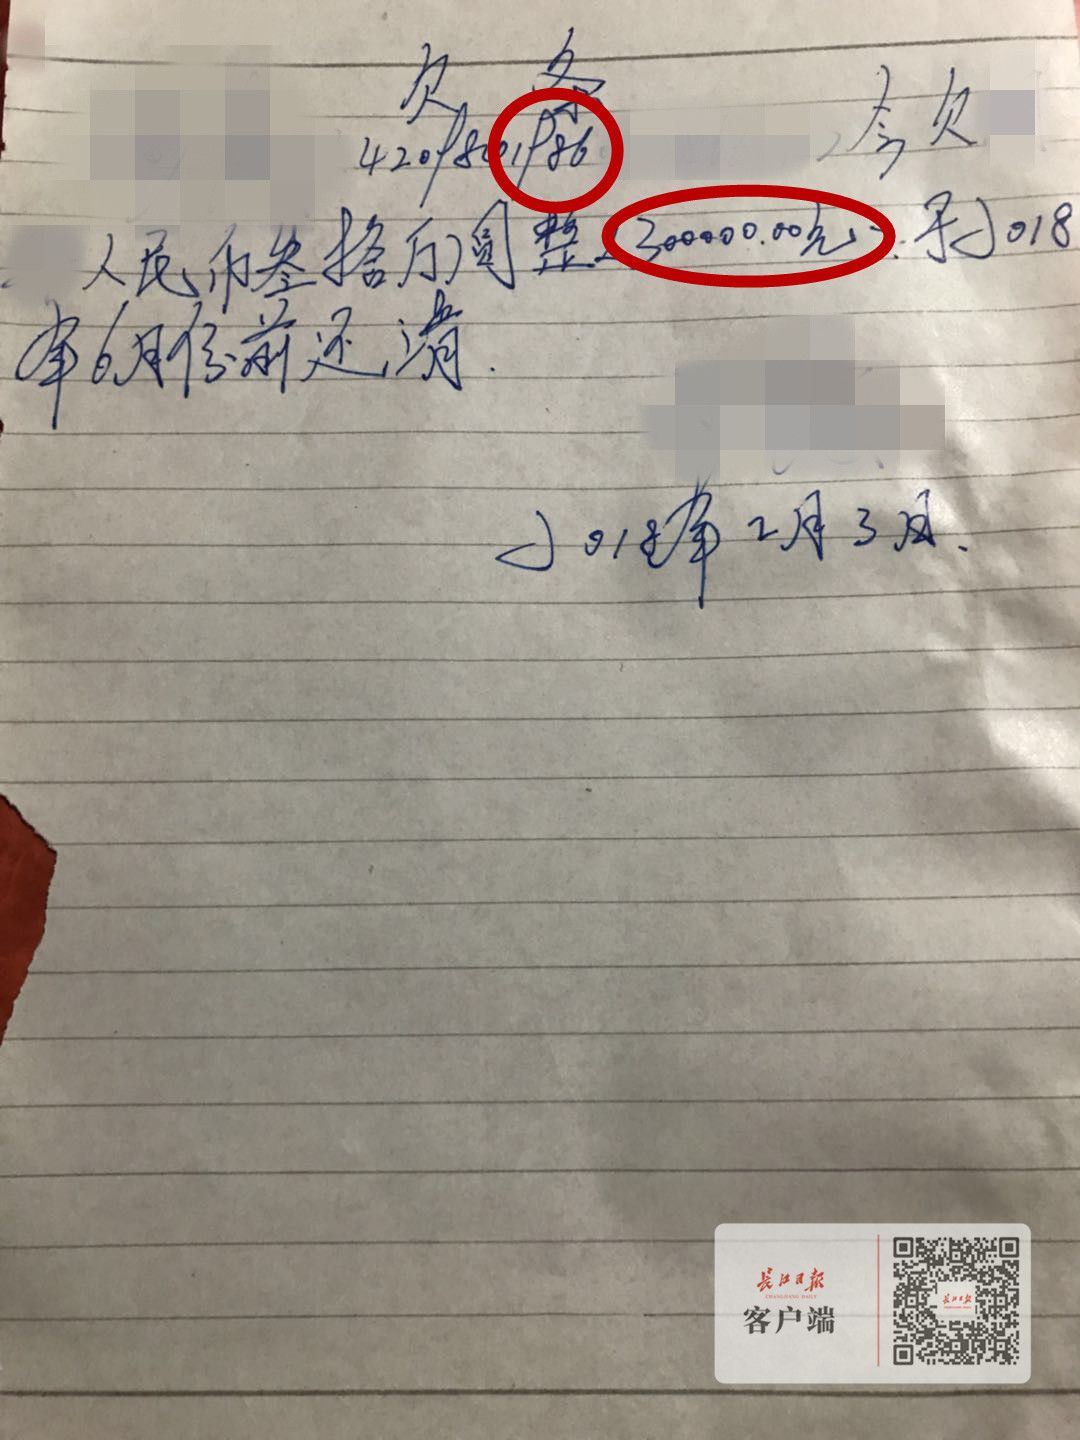 欠条
4201801986 今欠
人民币叁拾万圆整300000.00元.于2018
年6月份前还清.
2018年2月3日.
长江日报
CHANGJIANG DAILY
客户端
长江日报